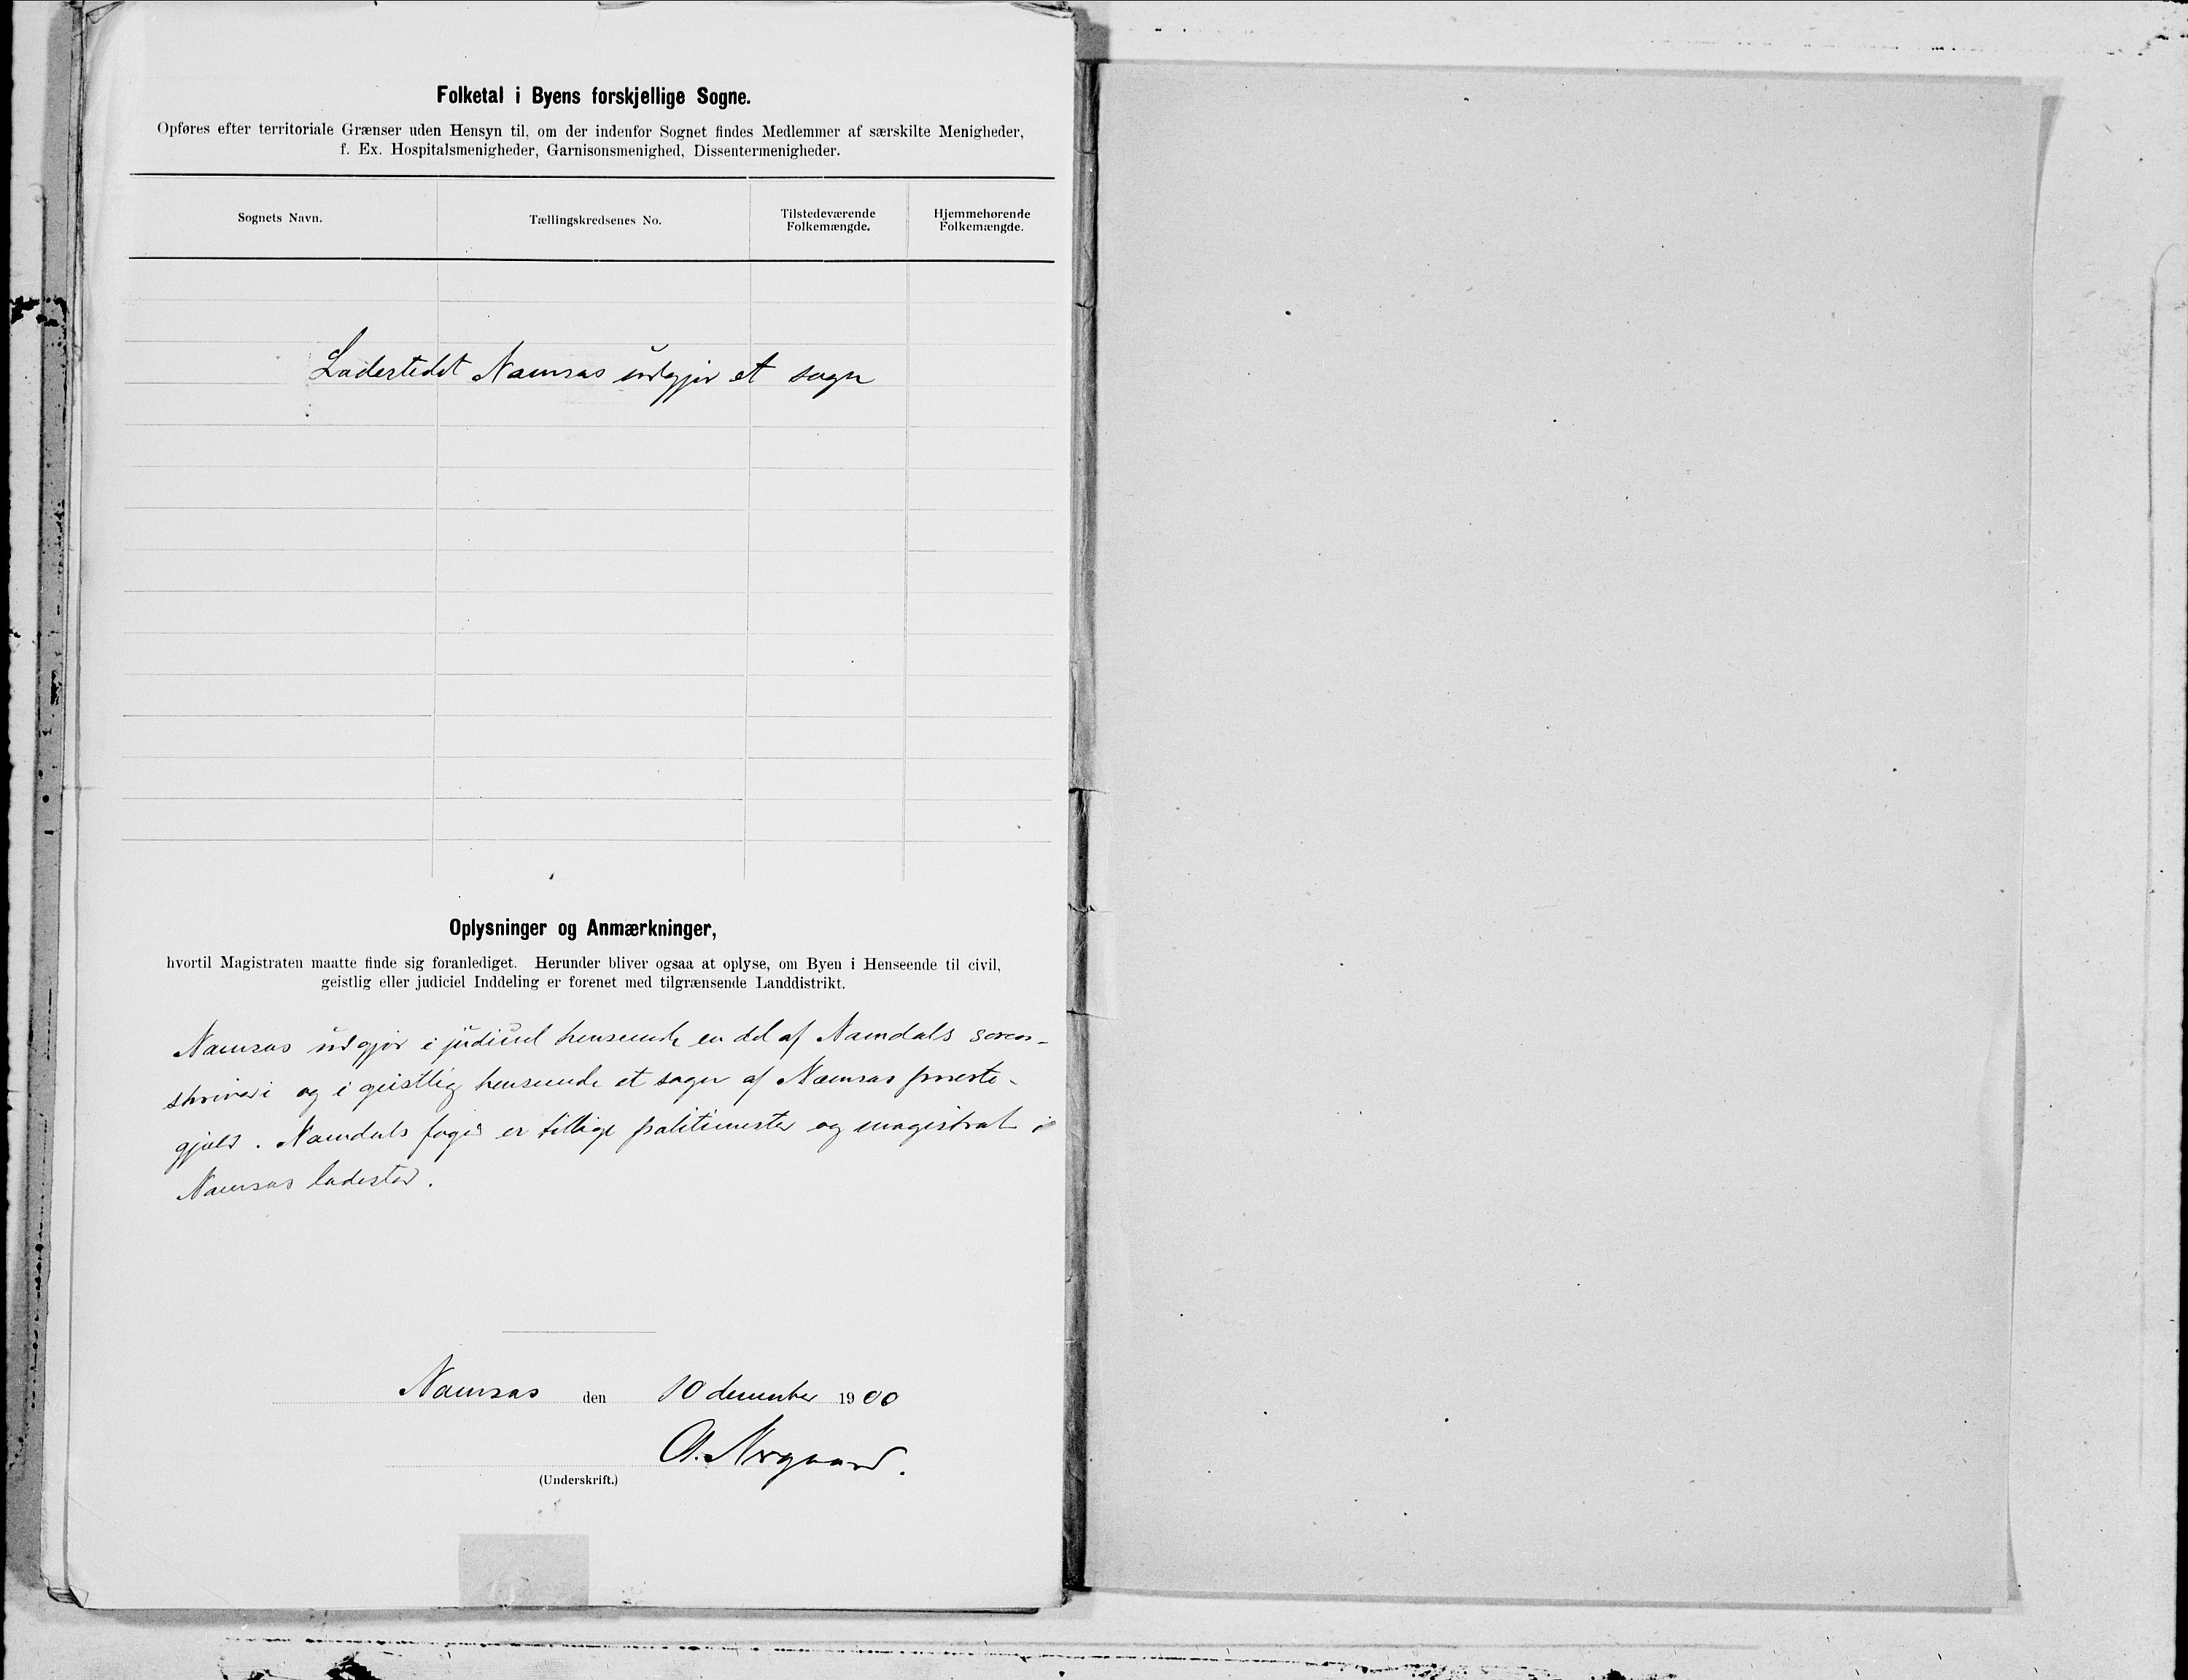 Folketal i Byens forskjellige Sogne.
Opføres efter territoriale Grænser uden Hensyn til, om der indenfor Sognet findes Medlemmer af særskilte Menigheder,
f. Ex. Hospitalsmenigheder, Garnisonsmenighed, Dissentermenigheder.
Sognets Navn.
Tællingskredsenes No.
Tilstedeværende
Folkemængde.
Hjemmehørende
Folkemængde.
Ladestedet Namsos udgjør et sogn
Oplysninger og Anmærkninger,
hvortil Magistraten maatte finde sig foranlediget. Herunder bliver ogsaa at oplyse, om Byen i Henseende til civil,
geistlig eller judiciel Inddeling er forenet med tilgrænsende Landdistrikt.
Namsos udgjør i judiciel henseende en del af Namdals soren-
skriveri og i geistlig henseende et sogn af Namsos præste-
gjæld. Namdals foged er tillige politimester og magistrat i
Namsos ladested.
Namsos den 10 december 1900
(Underskrift.)